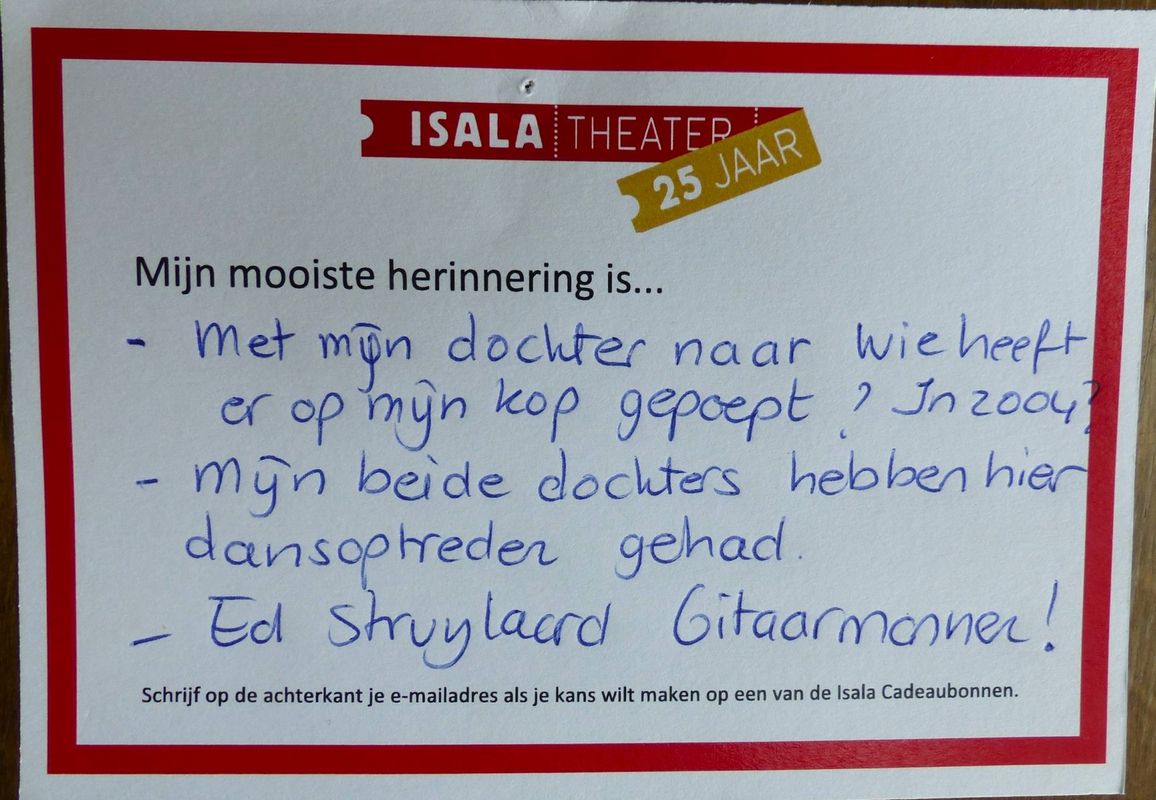 ISALA THEATER
25 JAAR
Mijn mooiste herinnering is...
- Met mijn dochter naar Wie heeft
er op mijn kop gepoept? In 2004?
- Mijn beide dochters hebben hier
dansoptreden gehad.
- Ed Struylaard Gitaarmannen!
Schrijf op de achterkant je e-mailadres als je kans wilt maken op een van de Isala Cadeaubonnen.